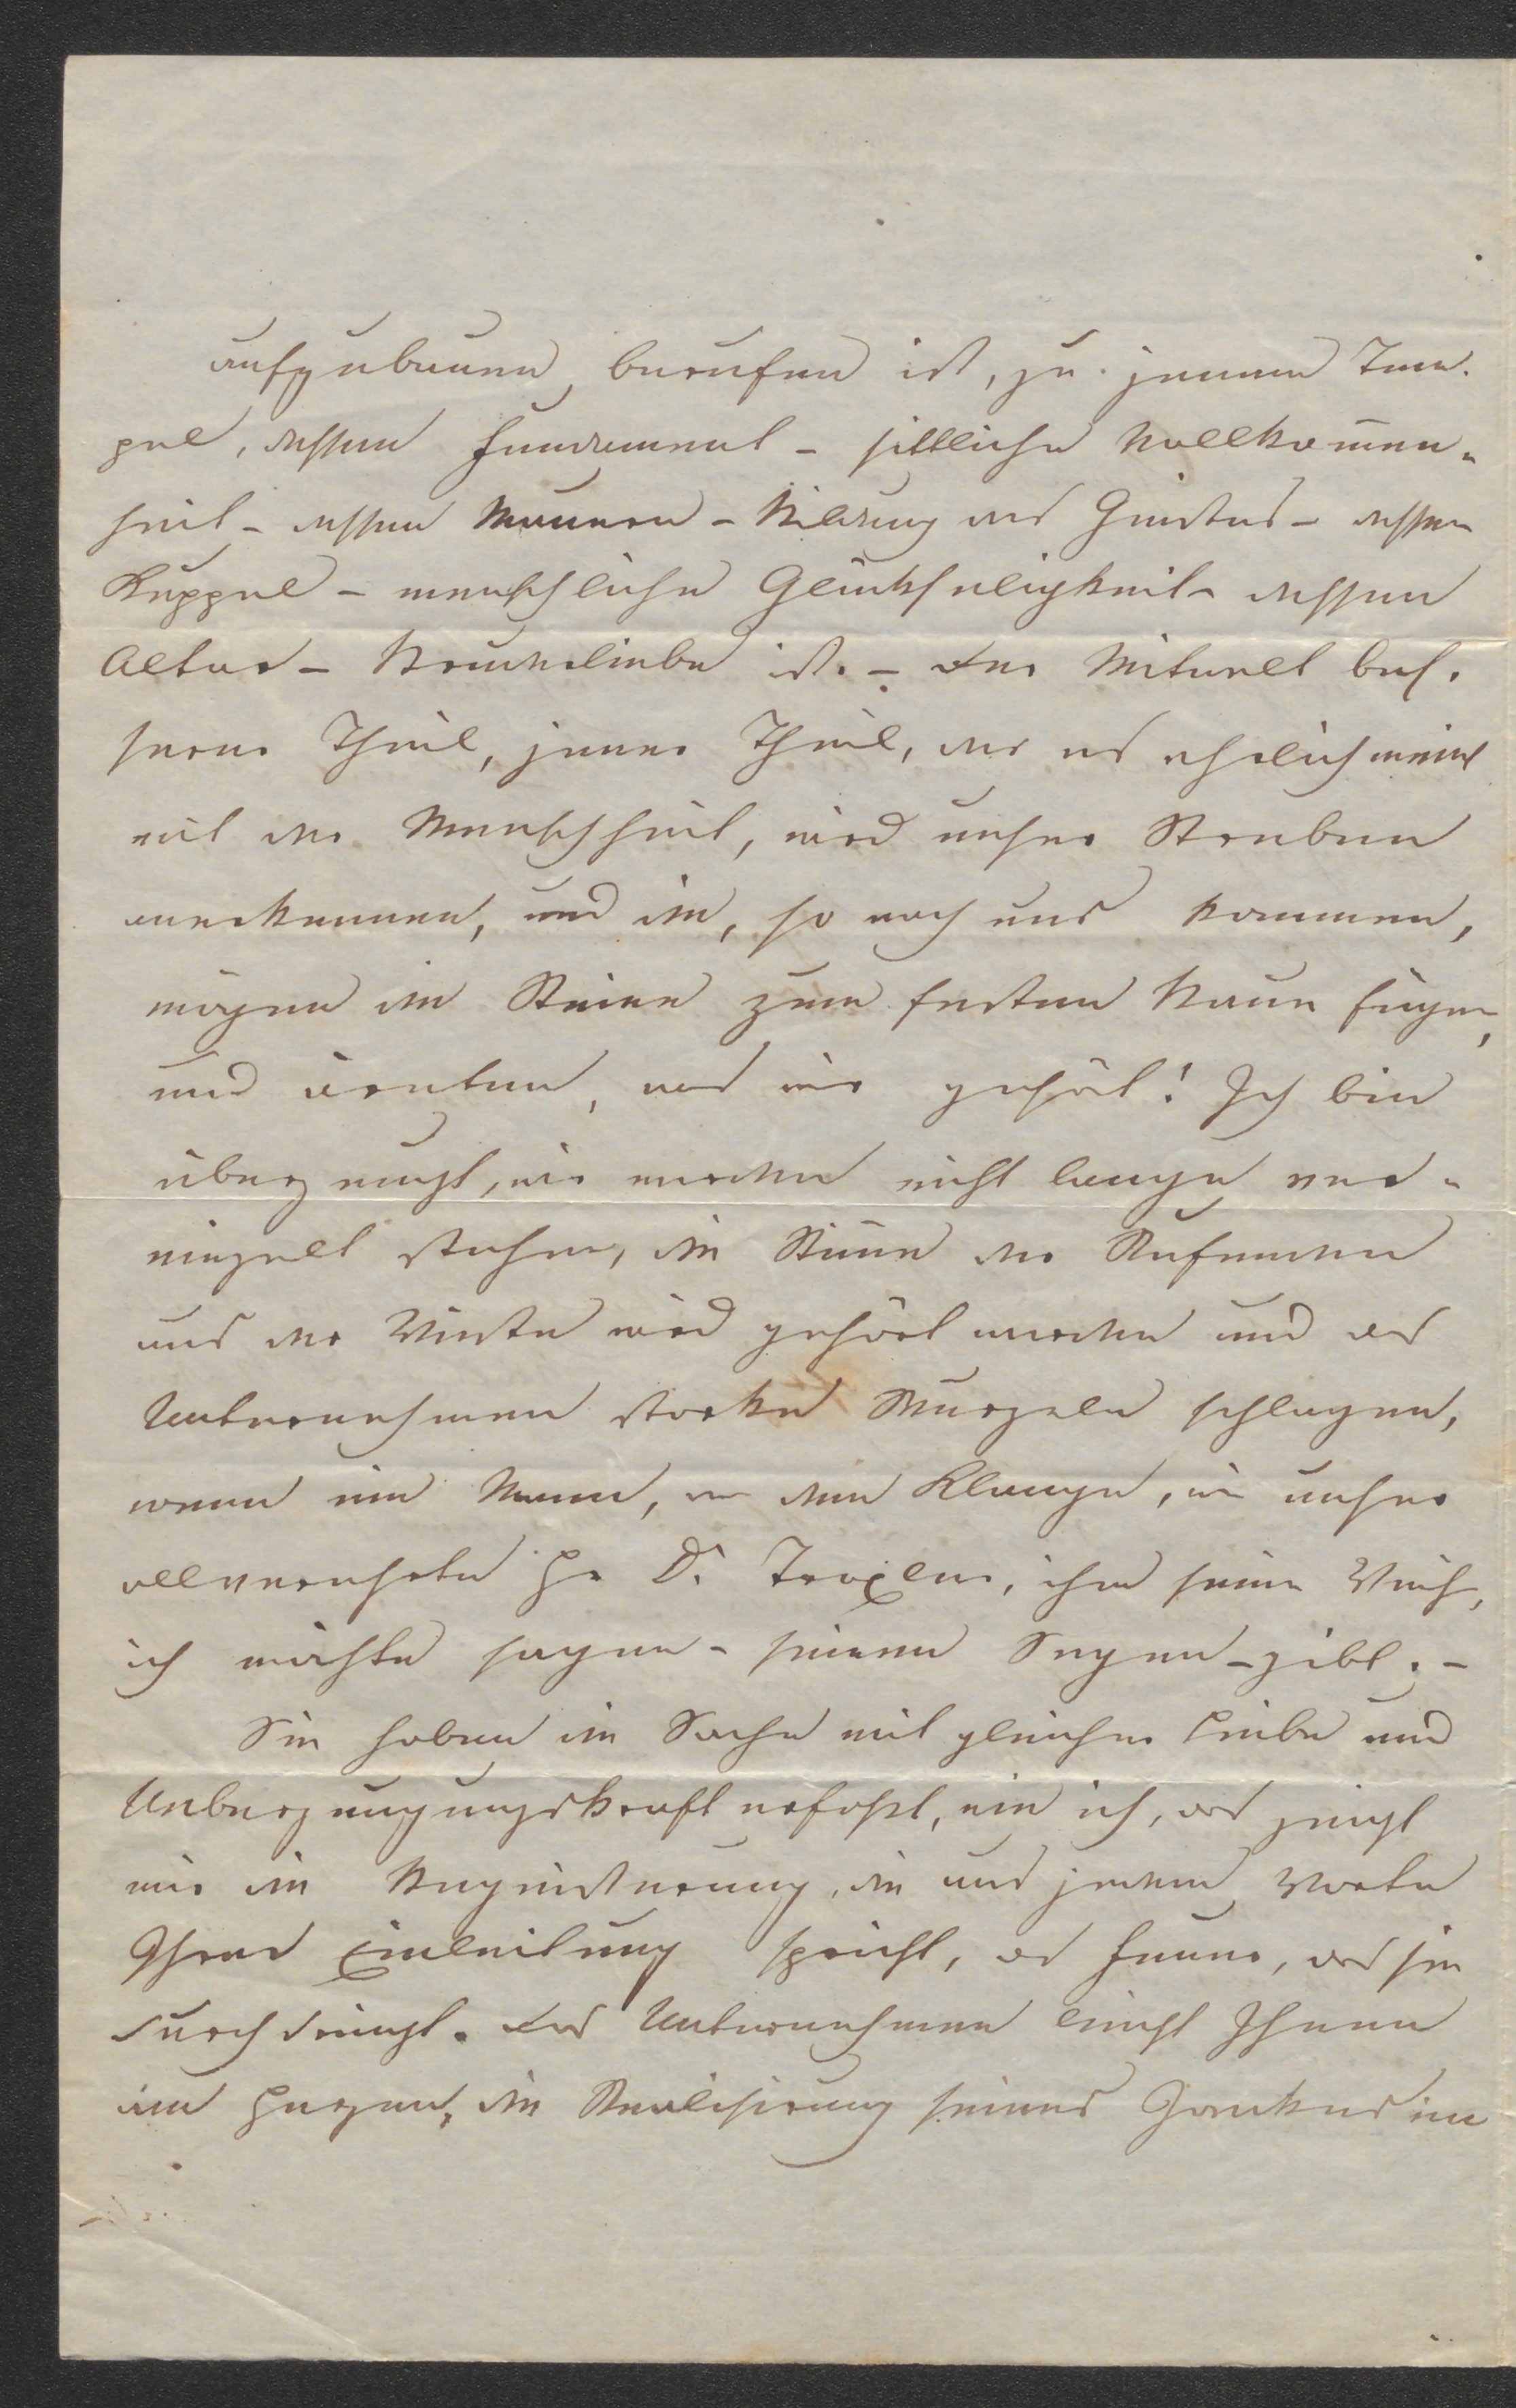 aufzubauen berufen ist, zu jenem Tem-
pel, dessen Fundament – sittliche Vollkommen-
heit – dessen Mauern – Bildung des Geistes – dessen
Kuppel – menschliche Glückseligkeit – dessen
Altar – Bruderliebe ist. – Der Mitwelt bes.
serer Theil, jener Theil, der es ehrlich meint
mit der Menschheit, wird unser Streben
anerkennen, und die, so nach uns kommen,
mögen die Steine zum festen Baue fügen,
und ernten, was wir gesät! Ich bin
überzeugt, wir werden nicht lange ver-
einzelt stehen, die Stimme des Rufenden
aus der Wüste wird gehört werden und das
Unternehmen starke Wurzeln schlagen,
wenn ein Mann, von dem Klange, wie unser
allverehrte Hr Dr Troxler, ihm seine Weihe,
ich möchte sagen – seinen Segen – gibt. –
Sie haben die Sache mit gleicher Liebe und
Ueberzeugungskraft erfaßt, wie ich, das zeigt
mir die Begeisterung, die aus jedem Worte
Ihrer Einleitung spricht, das Feuer, das sie
durchdringt. Das Unternehmen liegt Ihnen
am Herzen, die Realisirung seines Zweckes im